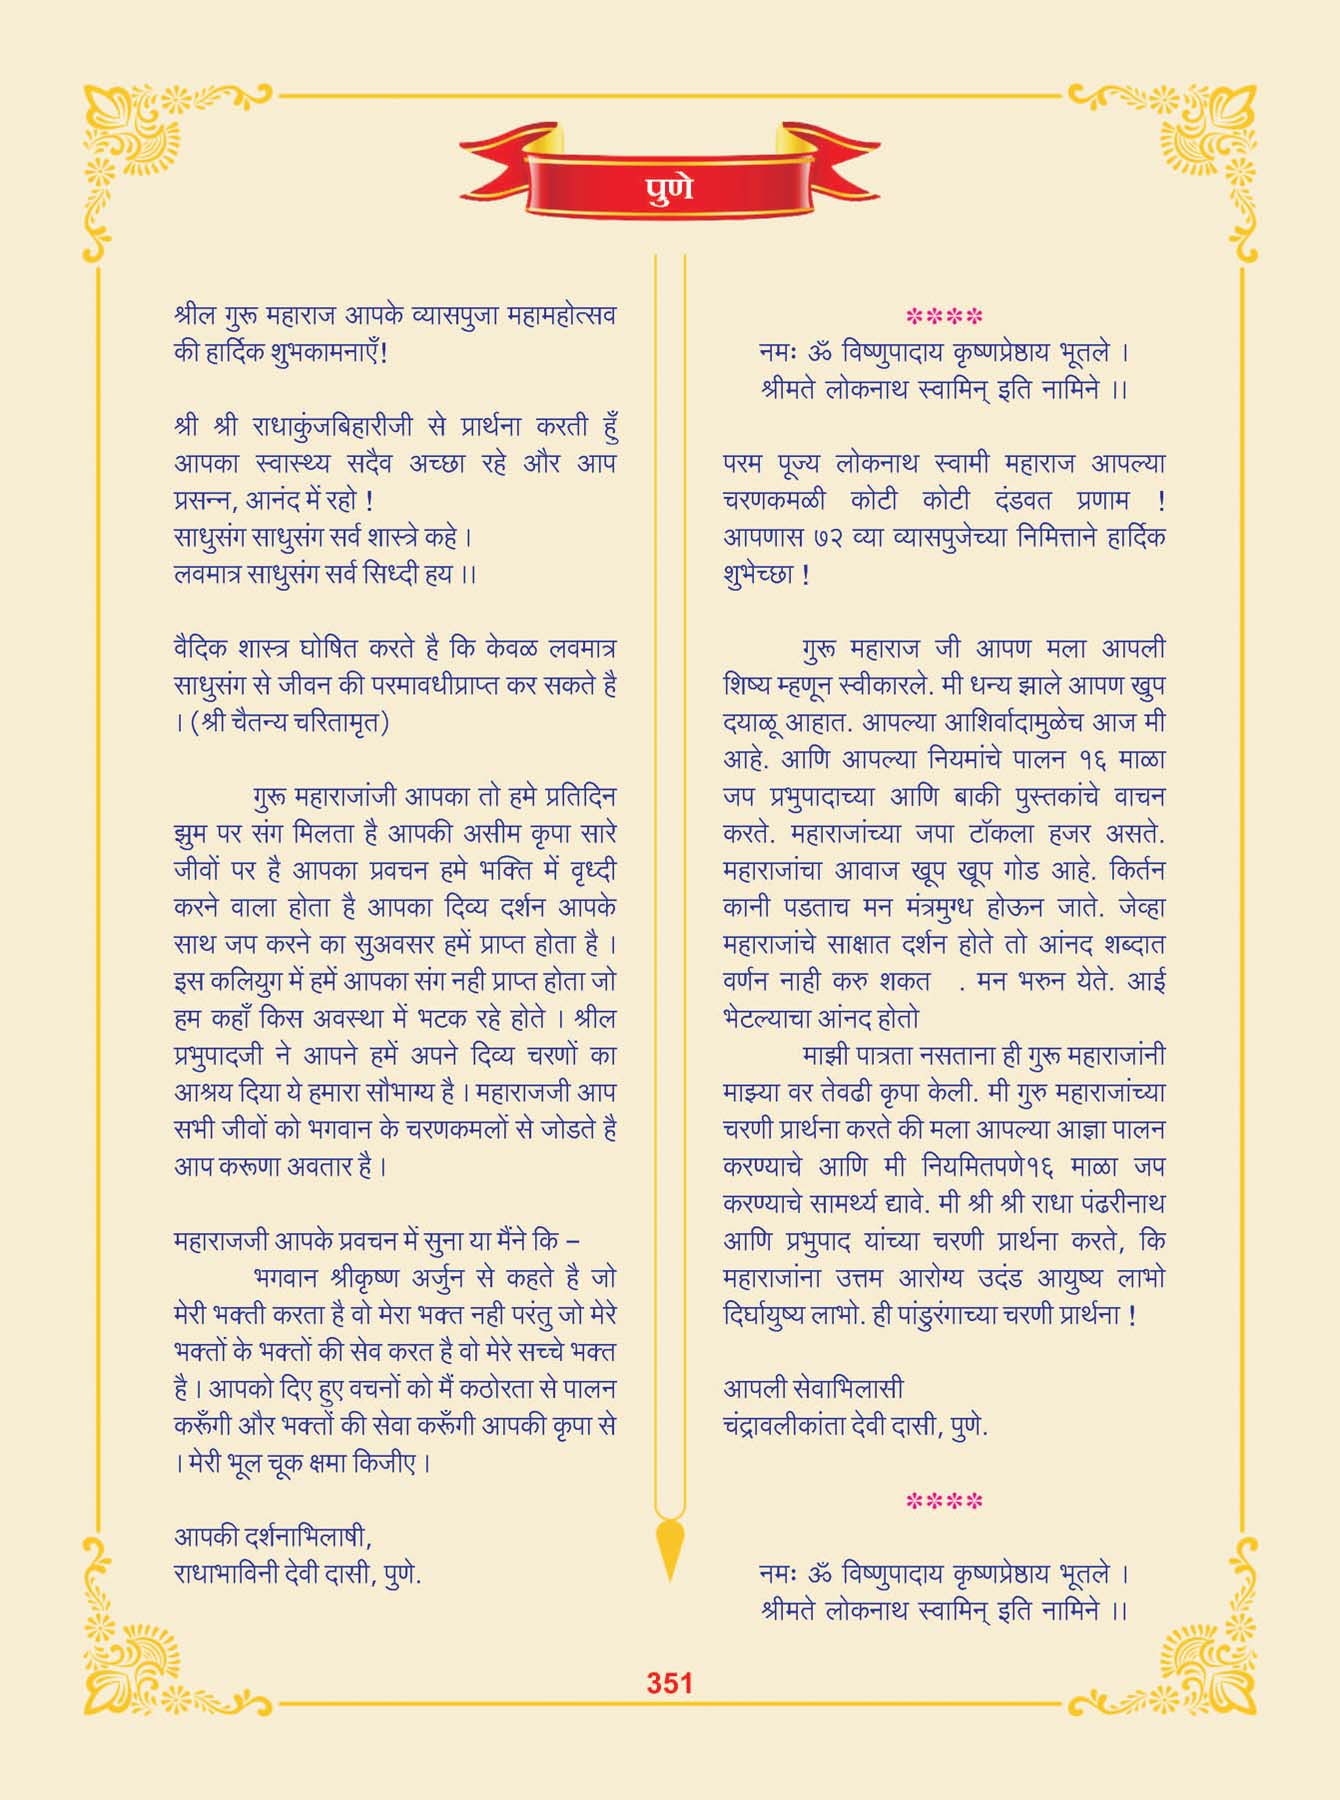 पुणे
श्रील गुरू महाराज आपके व्यासपुजा महामहोत्सव
की हार्दिक शुभकामनाएँ!
श्री श्री राधाकुंजबिहारीजी से प्रार्थना करती हुँ
आपका स्वास्थ्य सदैव अच्छा रहे और आप
प्रसन्न, आनंद में रहो !
साधुसंग साधुसंग सर्व शास्त्रे कहे ।
लवमात्र साधुसंग सर्व सिध्दी हय ।।
वैदिक शास्त्र घोषित करते है कि केवळ लवमात्र
साधुसंग से जीवन की परमावधीप्राप्त कर सकते है
। (श्री चैतन्य चरितामृत)
गुरू महाराजांजी आपका तो हमे प्रतिदिन
झुम पर संग मिलता है आपकी असीम कृपा सारे
जीवों पर है आपका प्रवचन हमे भक्ति में वृध्दी
करने वाला होता है आपका दिव्य दर्शन आपके
साथ जप करने का सुअवसर हमें प्राप्त होता है ।
इस कलियुग में हमें आपका संग नही प्राप्त होता जो
हम कहाँ किस अवस्था में भटक रहे होते । श्रील
प्रभुपादजी ने आपने हमें अपने दिव्य चरणों का
आश्रय दिया ये हमारा सौभाग्य है । महाराजजी आप
सभी जीवों को भगवान के चरणकमलों से जोडते है
आप करूणा अवतार है ।
महाराजजी आपके प्रवचन में सुना या मैंने कि –
भगवान श्रीकृष्ण अर्जुन से कहते है जो
मेरी भक्ती करता है वो मेरा भक्त नही परंतु जो मेरे
भक्तों के भक्तों की सेव करत है वो मेरे सच्चे भक्त
है । आपको दिए हुए वचनों को मैं कठोरता से पालन
करूँगी और भक्तों की सेवा करूँगी आपकी कृपा से
। मेरी भूल चूक क्षमा किजीए ।
आपकी दर्शनाभिलाषी,
राधाभाविनी देवी दासी, पुणे.
****
नमः ॐ विष्णुपादाय कृष्णप्रेष्ठाय भूतले ।
श्रीमते लोकनाथ स्वामिन् इति नामिने ।।
परम पूज्य लोकनाथ स्वामी महाराज आपल्या
चरणकमळी कोटी कोटी दंडवत प्रणाम !
आपणास ७२ व्या व्यासपुजेच्या निमित्ताने हार्दिक
शुभेच्छा !
गुरू महाराज जी आपण मला आपली
शिष्य म्हणून स्वीकारले. मी धन्य झाले आपण खुप
दयाळू आहात. आपल्या आशिर्वादामुळेच आज मी
आहे. आणि आपल्या नियमांचे पालन १६ माळा
जप प्रभुपादाच्या आणि बाकी पुस्तकांचे वाचन
करते. महाराजांच्या जपा टॉकला हजर असते.
महाराजांचा आवाज खूप खूप गोड आहे. किर्तन
कानी पडताच मन मंत्रमुग्ध होऊन जाते. जेव्हा
महाराजांचे साक्षात दर्शन होते तो आंनद शब्दात
वर्णन नाही करु शकत . मन भरुन येते. आई
भेटल्याचा आंनद होतो
माझी पात्रता नसताना ही गुरू महाराजांनी
माझ्या वर तेवढी कृपा केली. मी गुरु महाराजांच्या
चरणी प्रार्थना करते की मला आपल्या आज्ञा पालन
करण्याचे आणि मी नियमितपणे१६ माळा जप
करण्याचे सामर्थ्य द्यावे. मी श्री श्री राधा पंढरीनाथ
आणि प्रभुपाद यांच्या चरणी प्रार्थना करते, कि
महाराजांना उत्तम आरोग्य उदंड आयुष्य लाभो
दिर्घायुष्य लाभो. ही पांडुरंगाच्या चरणी प्रार्थना !
आपली सेवाभिलासी
चंद्रावलीकांता देवी दासी, पुणे.
****
नमः ॐ विष्णुपादाय कृष्णप्रेष्ठाय भूतले ।
श्रीमते लोकनाथ स्वामिन् इति नामिने ।।
351